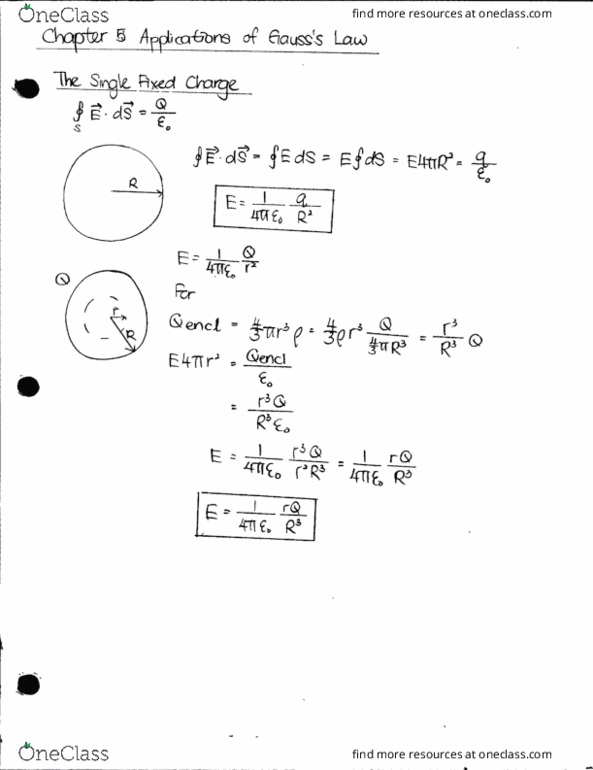 OneClass find more resources at oneclass.com
Chapter 5 Applications of Gauss's Law
The Single Fixed Charge
∮_S E⃗ · dS⃗ = Q/ε₀
∮E⃗ · dS⃗ = ∮E dS = E∮dS = E4πR² = q/ε₀
R
E = 1/4πε₀ q/R²
E = 1/4πε₀ Q/r²
Q
For
r
R
Qencl = 4/3 πr³ρ = 4/3 ρr³ Q/(4/3 πR³) = r³/R³ Q
E4πr² = Qencl/ε₀
= r³Q/R³ε₀
E = 1/4πε₀ r³Q/r²R³ = 1/4πε₀ rQ/R³
E = 1/4πε₀ rQ/R³
OneClass find more resources at oneclass.com